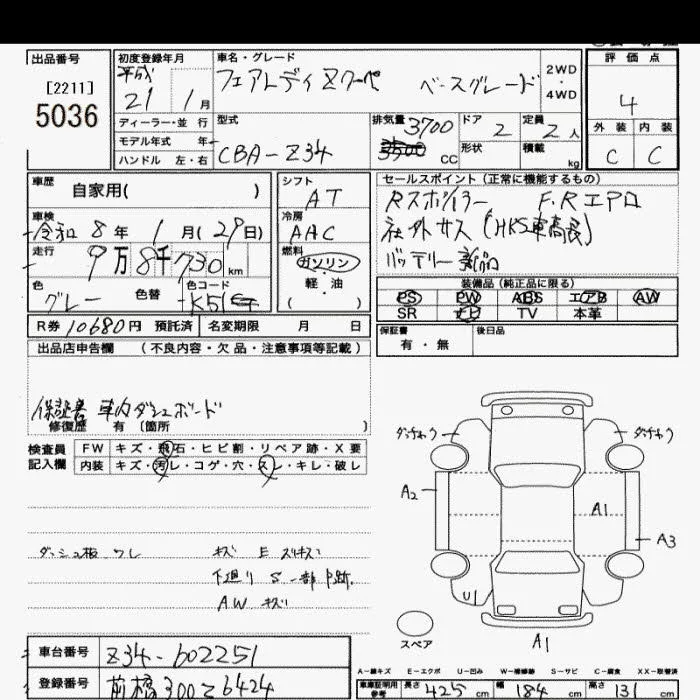 出品番号
[2211]
5036
初度登録年月
平成
21 1月
ディーラー・並 行
モデル年式 年
ハンドル 左・右
車名・グレード
フェアレディZクーペ ベースグレード
2WD
・
4WD
型式
CBA-Z34
排気量 3700
cc
ドア 2
定員 2人
形状
積載 kg
評価点
4
外装 内装
C C
車歴
自家用( )
車検
令和 8年 1月(29日)
走行
9万8千730km
色 グレー
色替
色コード K51
シフト
AT
冷房
AAC
燃料
ガソリン
・
軽・油
( )
セールスポイント(正常に機能するもの)
Rスポイラー F.Rエアロ
社外サス(HKS車高長)
バッテリー新品
装備品(純正品に限る)
PS PW ABS エアB AW
SR ナビ TV 本革
R券 10680円 預託済
名変期限 月 日
保証書
有・無
後日品
出品店申告欄 (不良内容・欠品・注意事項等記載)
保証書 車内ダシュボード
修復歴 有〔箇所 〕
検査員
記入欄
FW キズ・飛石・ヒビ割・リペア跡・X要
内装 キズ・汚レ・コゲ・穴・スレ・キレ・破レ
ダッシュ板 ワレ キズ E ズリキズ
下廻り S 一部P跡.
AW キズ
A2
A1
A3
U1
A1
スペア
車台番号 Z34-602251
登録番号 前橋300 6424
A-線キズ E-エクボ U-凹み W-補修跡 S-サビ C-腐食 XX-取替済
車庫証明用
参考
長さ 425cm 幅 184cm 高さ 131cm